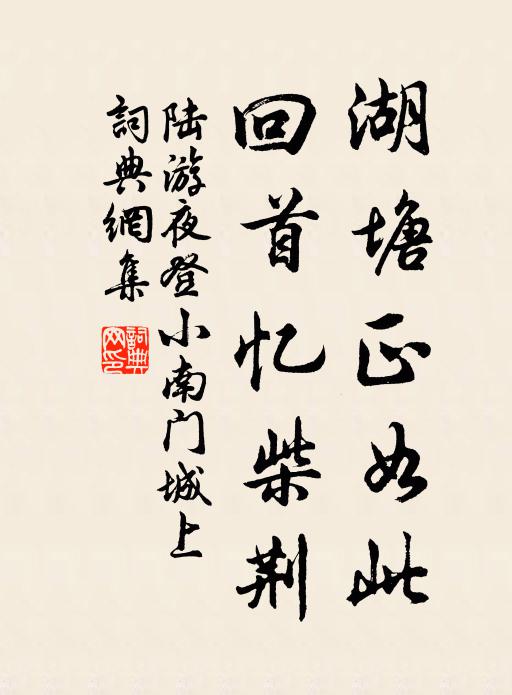 湖塘正如此
回首忆柴荆
陆游夜登小南门城上
詞典網集
詞典网印